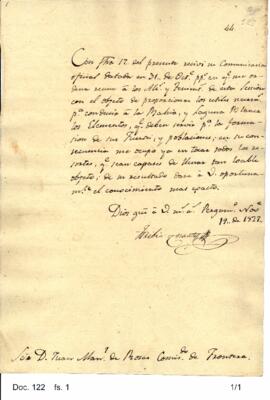 44.
Con fha 12 del presente recivi su Comunicacn
oficial datada en 31. de Octe. pp. en qe. me or
dena reuna á los Alcs. y de esta Seccion
con el objeto de proporcionar los utiles necesars.
pa. conducir á la Bahia, y Laguna Blanca
los Elementos, qe. deben servir pa. la forma
cion de sus Fuertes, y poblaciones; en su con
secuencia me ocupo ya en tocar todos los re
sortes, qe. sean capaces de llenar tan loable
objeto; de su resultado daré á V. oportuna
me. el conocimiento mas exacto.
Dios gue. á V. ms. as. Pergamo. Nove.
19., de 1827.
Sor. D. Juan Manl. de Rosas Comisdo. de Frontera.
Doc. 122 fs. 1
1/1